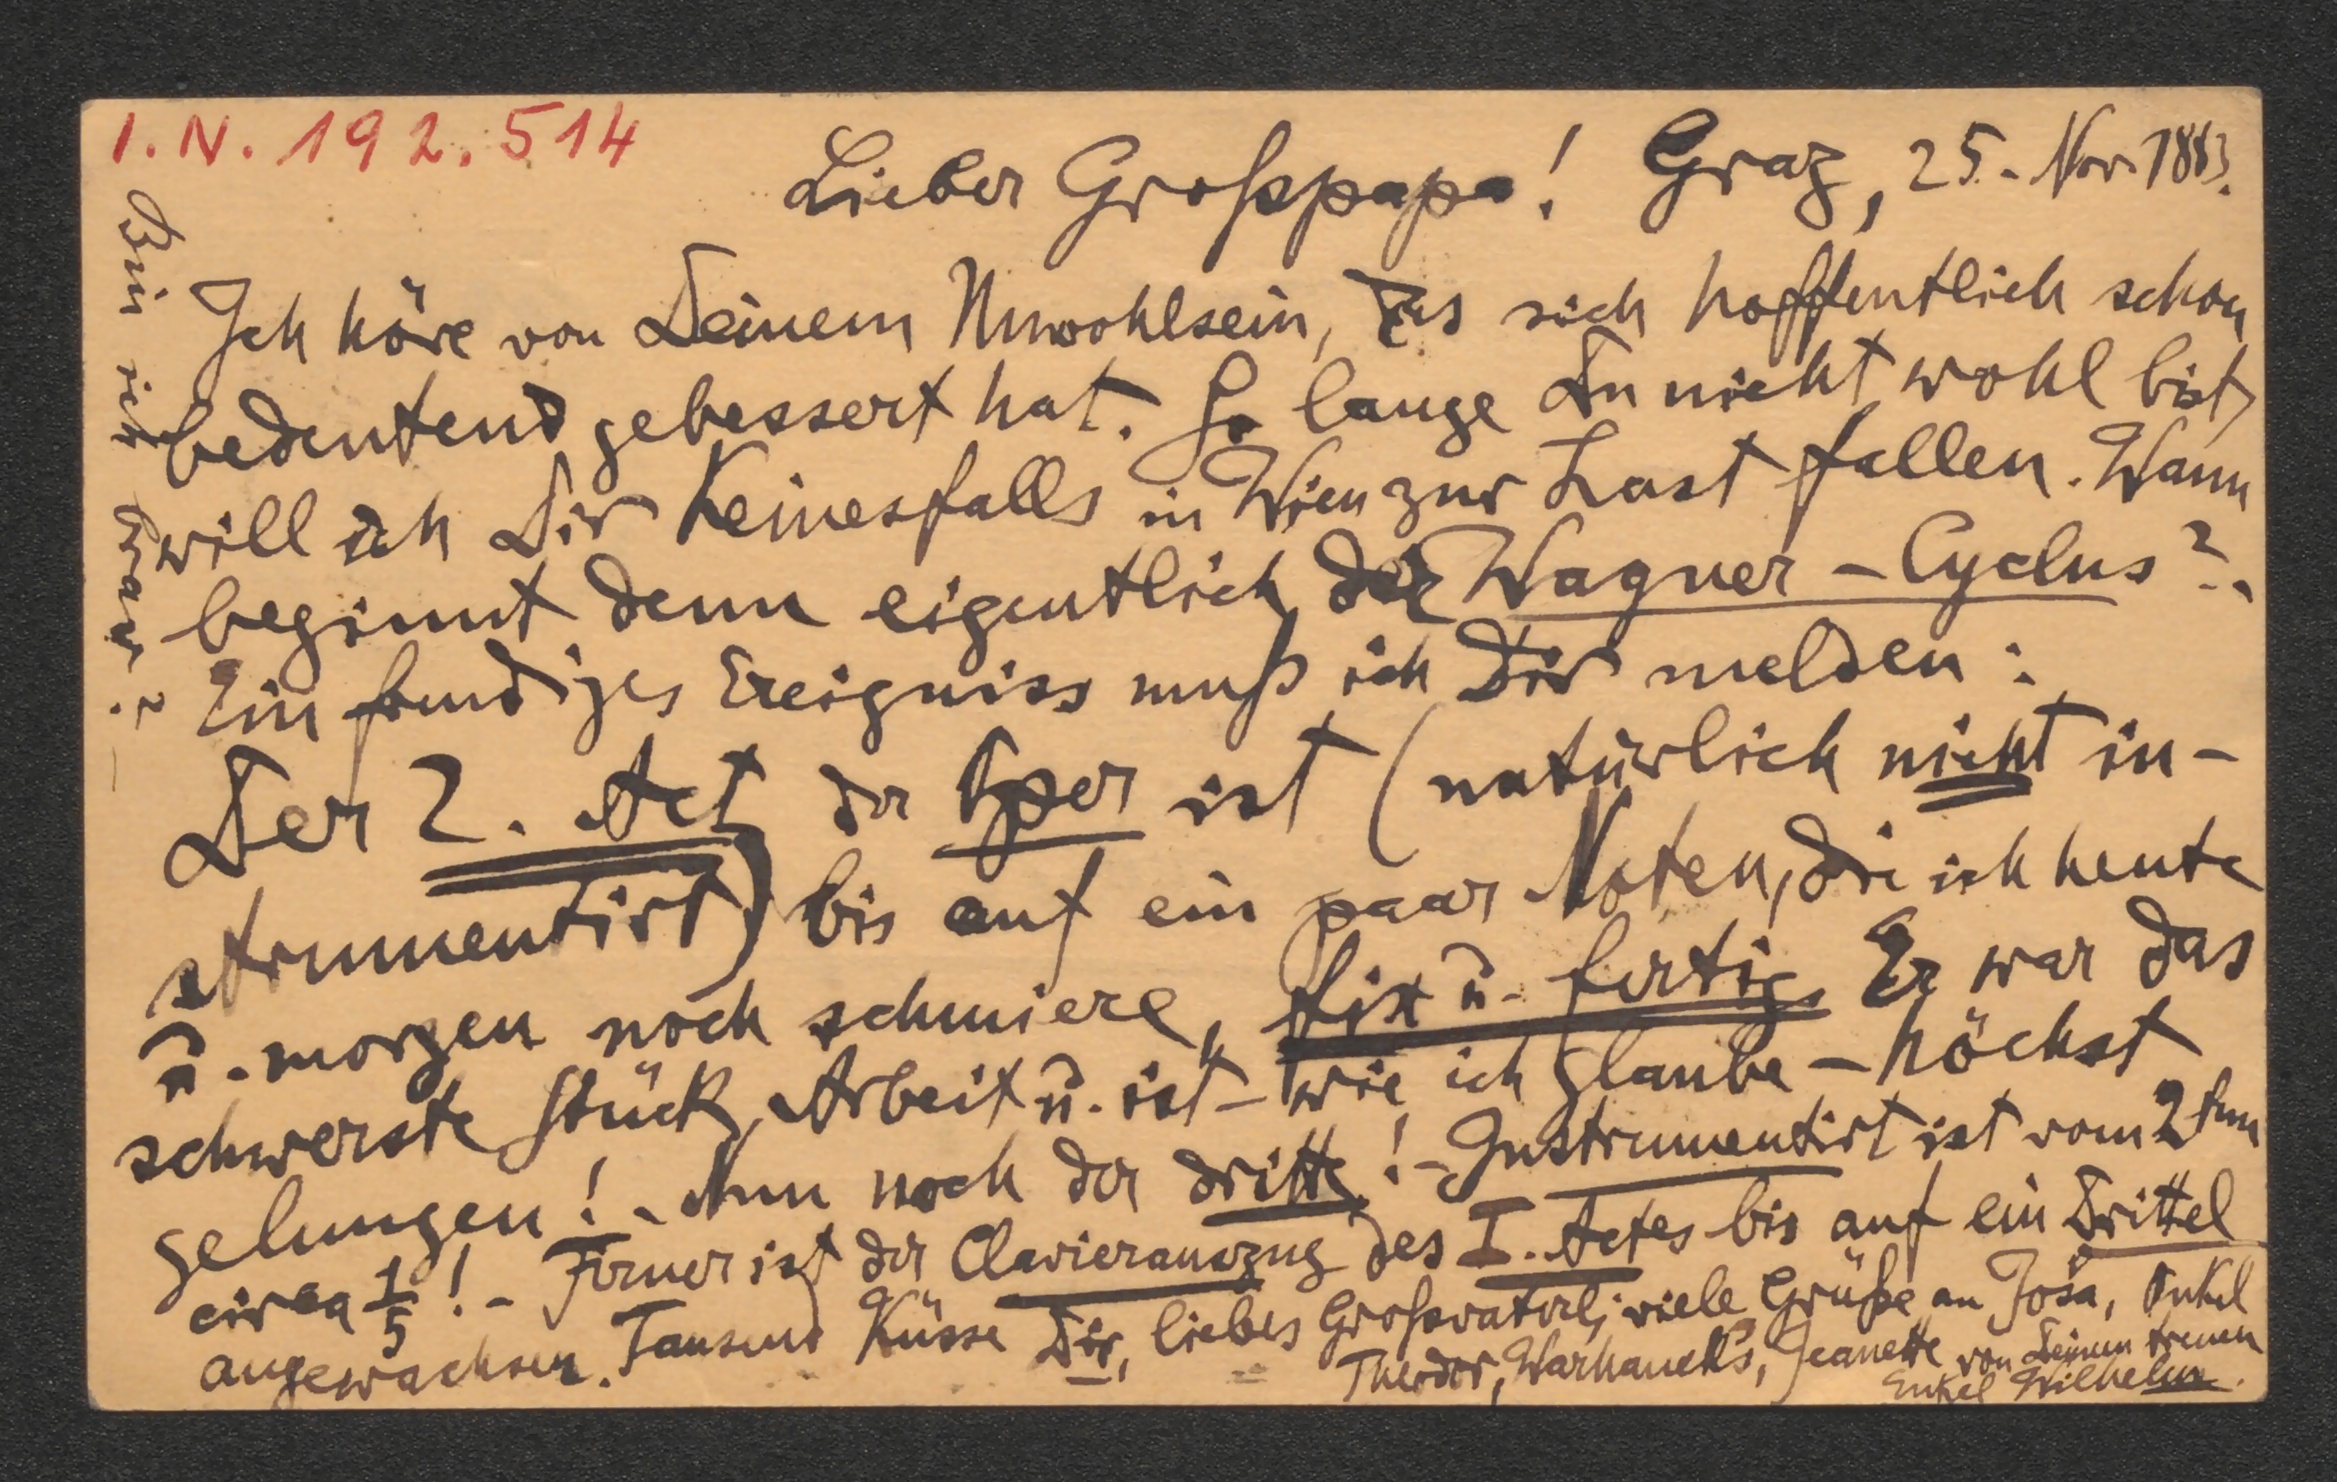 I.N. 192.514
Lieber Großpapa! Graz, 25. Nov. 1883.
Ich höre von Deinem Unwohlsein, das sich hoffentlich schon
bedeutend gebessert hat. So lange Du nicht wohl bist,
will ich Dir keinesfalls in Wien zur Last fallen. Wann
beginnt denn eigentlich der Wagner-Cyclus?
Ein freudiges Ereigniss muß ich Dir melden:
Der 2. Act der Oper ist (natürlich nicht in-
strumentirt) bis auf ein paar Noten, die ich heute
u. morgen noch schmiere, fix u. fertig. Er war das
schwerste Stück Arbeit u. ist – wie ich glaube – höchst
gelungen! – Nun noch der dritte! – Instrumentirt ist vom 2ten
circa 1/5! – Ferner ist der Clavierauszug des I. Actes bis auf ein Drittel
angewachsen. Tausend Küsse Dir, liebes Großvaterl; viele Grüße an Josa, Onkel
Theodor, Warhanek's, Jeanette von Deinem treuen
Enkel Wilhelm.
Bin ich brav?